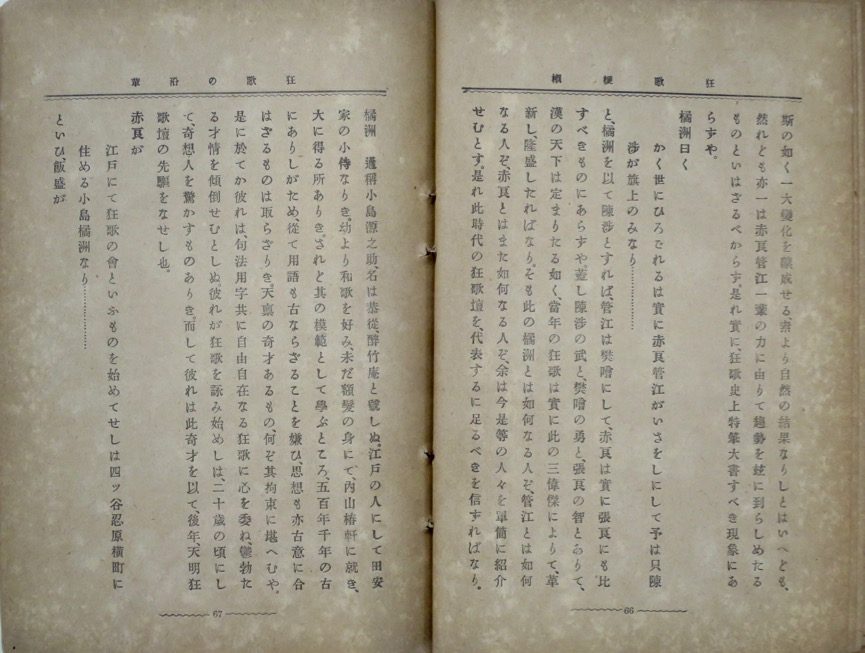 狂歌梗槪
斯の如く一大變化を釀成せる、素より自然の結果なりしとはいへども、
然れども亦一は赤良管江一輩の力に由りて趨勢を玆に到らしめたる
ものといはざるべからず、是れ實に、狂歌史上特筆大書すべき現象にあ
らずや。
橘洲曰く
かく世にひろごれるは實に赤良管江がいさをしにして予は只陳
涉が旗上のみなり…………
と、橘洲を以て陳涉とすれば、管江は樊噲にして、赤良は實に張良にも比
すべきものにあらずや。蓋し陳涉の武と、樊噲の勇と、張良の智とありて、
漢の天下は定まりたる如く、當年の狂歌は實に此の三偉傑によりて、革
新し、隆盛したればなり。そも此の橘洲とは如何なる人ぞ、管江とは如何
なる人ぞ、赤良とはまた如何なる人ぞ、余は今是等の人々を單簡に紹介
せむとす。是れ此時代の狂歌壇を、代表するに足るべきを信ずればなり。
66
狂歌の沿革
橘洲 通稱小島源之助、名は恭從、醉竹庵と號しぬ。江戸の人にして田安
家の小侍なりき。幼より和歌を好み、未だ額髮の身にて、內山椿軒に就き、
大に得る所ありき。されど其の模範として學ぶところ、五百年千年の古
にありしがため、從て用語も古ならざることを嫌ひ、思想も亦古意に合
はざるものは取らざりき。天稟の奇才あるもの、何ぞ其拘束に堪へむや。
是に於てか彼れは、句法用字共に自由自在なる狂歌に心を委ね、鬱勃た
る才情を傾倒せむとしぬ。彼れが狂歌を詠み始めしは、二十歲の頃にし
て、奇想人を驚かすものありき。而して彼れは此奇才を以て、後年、天明狂
歌壇の先驅をなせし也。
赤良が
江戸にて狂歌の會といふものを始めてせしは四ッ谷忍原橫町に
住める小島橘洲なり…………
といひ、飯盛が
67